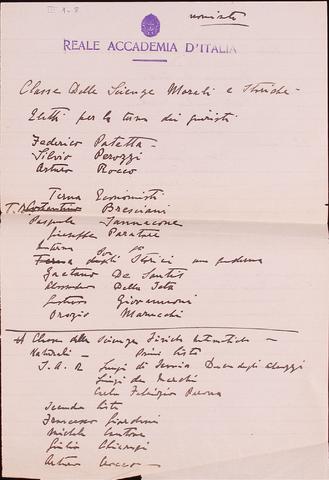 III 1-8
REALE ACCADEMIA D'ITALIA
Classe delle Scienze Morali e Storiche -
Eletti per la terna dei giuristi
Federico Patetta -
Silvio Perozzi
Arturo Rocco
Terna Economisti
Costantino Bresciani
Pasquale Jannacone
Giuseppe Paratore
Storici una
Gaetano De Sanctis
Alessandro Della Seta
Gustavo Giovannoni
Orazio Marucchi
Classe delle Scienze Fisiche Matematiche -
Naturali - Prima lista
S. A. R. Luigi di Savoia Duca degli Abruzzi
Luigi De Marchi
Carlo Fabrizio Parona
Seconda lista
Francesco Giordani
Michele Cantone
Giulio Chiarugi
Arturo